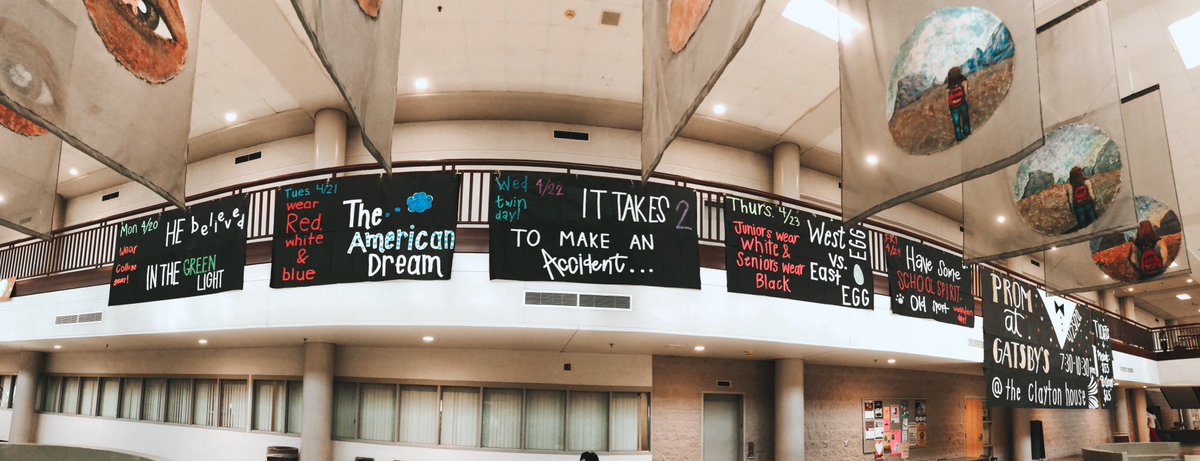 Mon 4/20
Wear
College
gear!
HE believed
IN THE GREEN
LIGHT
Tues 4/21
wear
Red,
white
&
blue
The
American
Dream
Wed 4/22
twin
day!
IT TAKES 2
TO MAKE AN
Accident...
Thurs. 4/23
Juniors wear
White &
Seniors wear
Black
West EGG
vs.
East EGG
Fri 4/24
Have Some
SCHOOL SPIRIT
Old sport
PROM
at
GATSBY'S
7:30-10:30
@ the clayton house